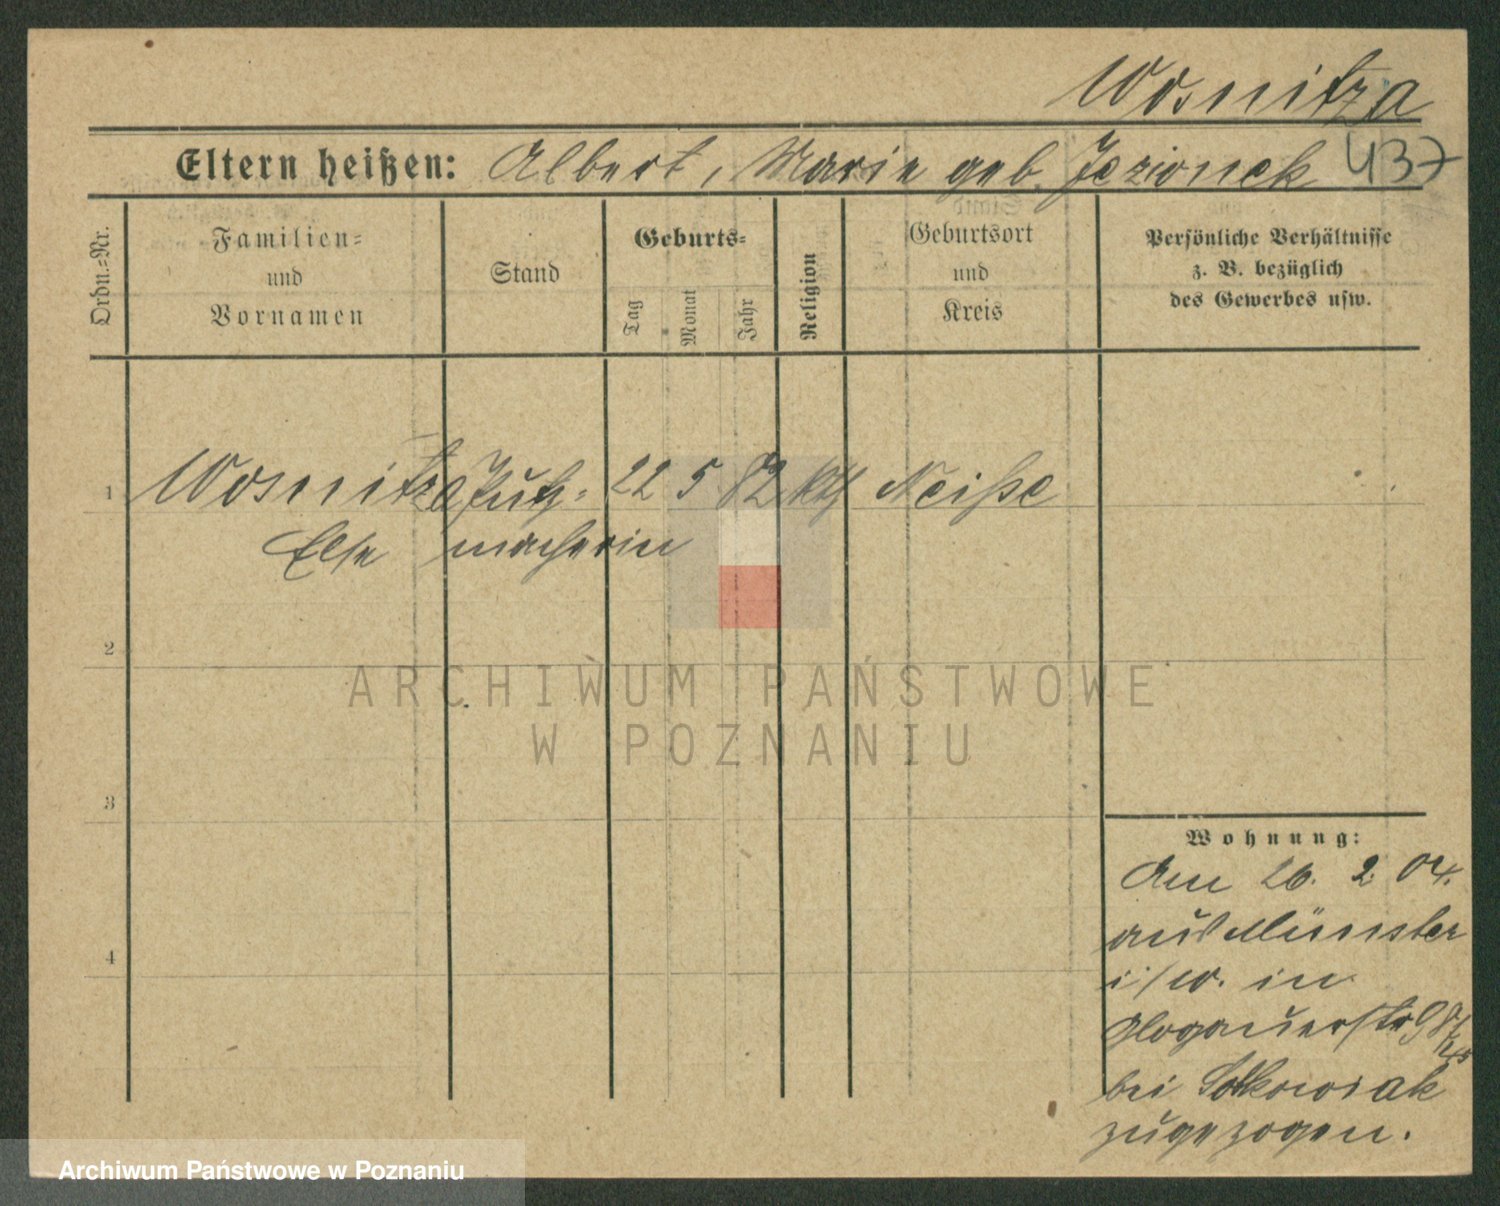 Wosnitza
Eltern heißen: Albert, Marie geb. Jezionek 437
Ordn.=Nr.
Familien=
und
Vornamen
Stand
Geburts=
Tag
Monat
Jahr
Religion
Geburtsort
und
Kreis
Persönliche Verhältnisse
z. B. bezüglich
des Gewerbes usw.
1 Wosnitza Putz= 22 5 82 kth Neiße
Else macherin
2
3
4
Wohnung:
Am 26. 2. 04.
aus Münster
i/W. in
Glogauerstr 98
bei
zugezogen.
ARCHIWUM PAŃSTWOWE
W POZNANIU
Archiwum Państwowe w Poznaniu